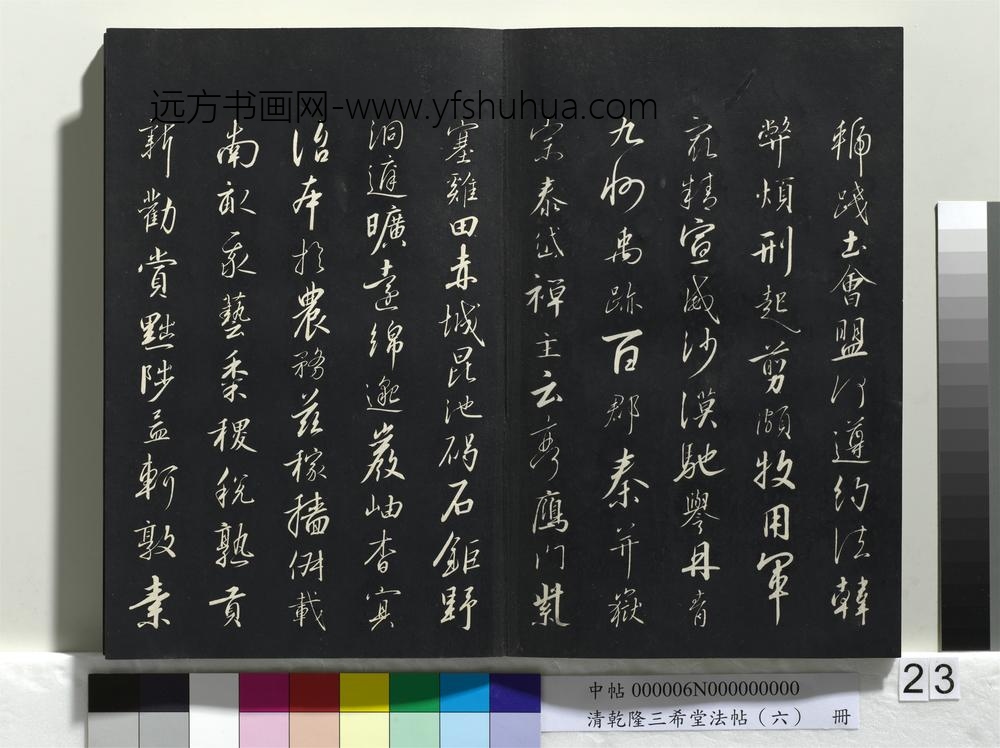 远方书画网-www.yfshuhua.com
虢踐土會盟何遵約法韓
弊煩刑起剪頗牧用軍
最精宣威沙漠馳譽丹青
九州禹跡百郡秦并嶽
宗泰岱禪主云亭鴈門紫
塞雞田赤城昆池碣石鉅野
洞庭曠遠綿邈巖岫杳冥
治本於農務茲稼穡俶載
南畝我藝黍稷稅熟貢
新勸賞黜陟孟軻敦素
23
中帖 000006N000000000
清乾隆三希堂法帖（六） 冊